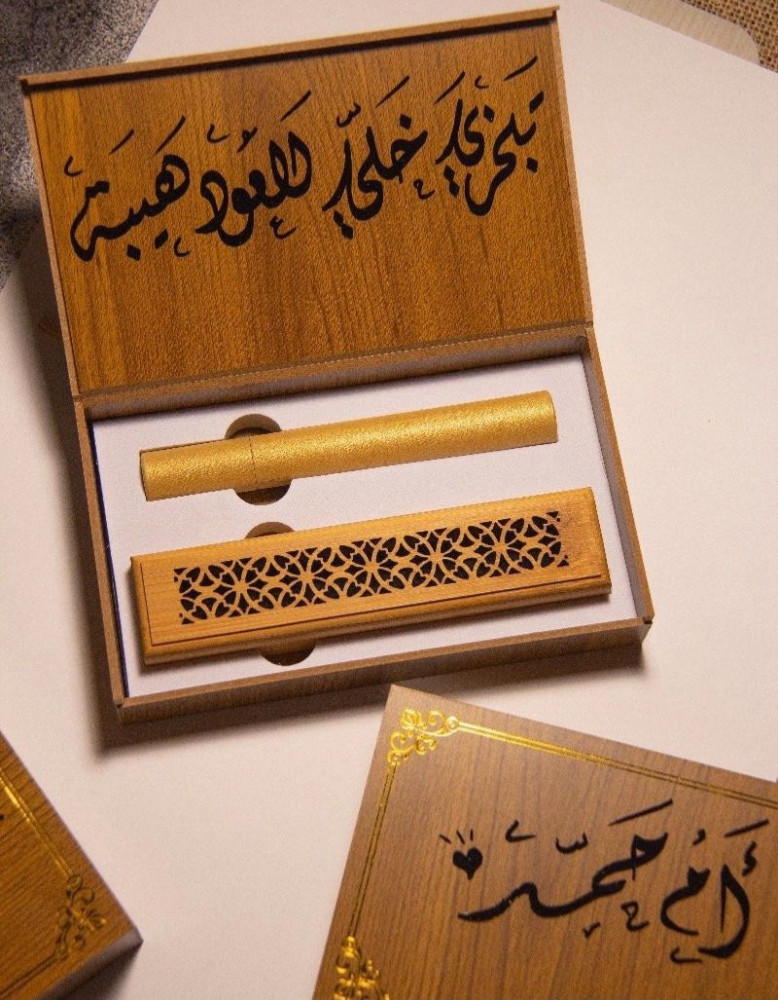 تبخري خلّي للعود هيبة
أم حمّد